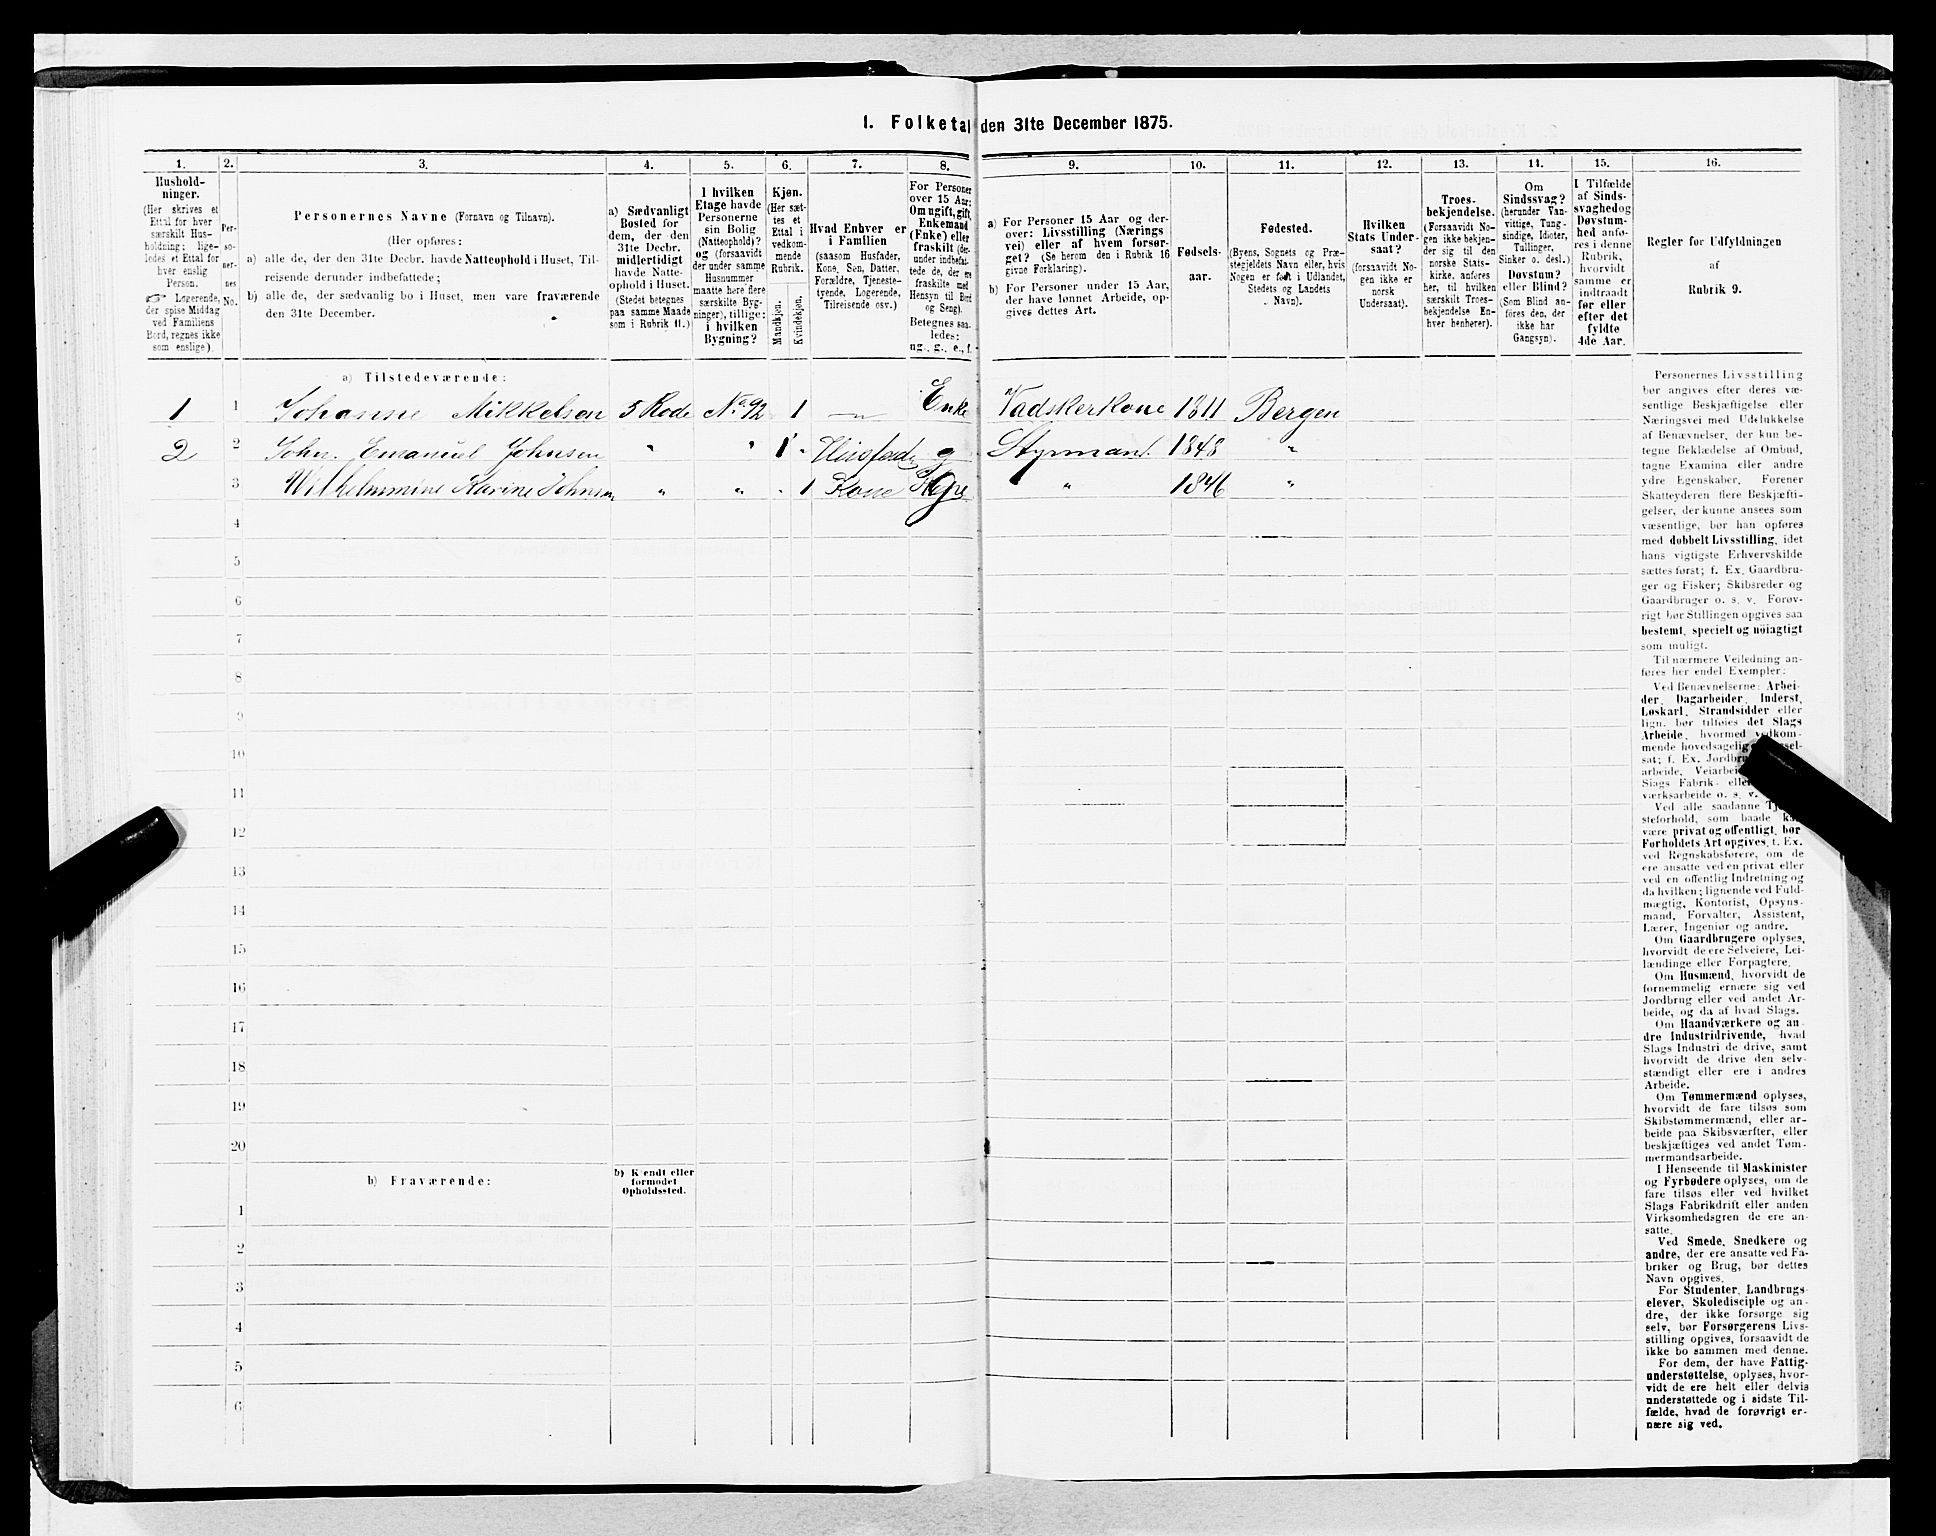 1. Folketal den 31te December 1875.
1.
2.
3.
4.
5.
6.
7.
8.
9.
10.
11.
12.
13.
14.
15.
16.
Hushold-
ninger.
(Her skrives et
Ettal for hver
særskilt Hus-
holdning; lige-
ledes et Ettal for
hver enslig
Person.
☞ Logerende,
der spise Middag
ved Familiens
Bord, regnes ikke
som enslige).
Per-
so-
ner-
nes
No.
Personernes Navne (Fornavn og Tilnavn).
(Her opføres:
a) alle de, der den 31te Decbr. havde Natteophold i Huset, Til-
reisende derunder indbefattede;
b) alle de, der sædvanlig bo i Huset, men vare fraværende
den 31te December.
a) Sædvanligt
Bosted for
dem, der den
31te Decbr.
midlertidigt
havde Natte-
ophold i Huset.
(Stedet betegnes
paa samme Maade
som i Rubrik 11.)
I hvilken
Etage havde
Personerne
sin Bolig
(Natteophold)?
og (forsaavidt
der under samme
Husnummer
maatte høre flere
særskilte Byg-
ninger), tillige:
i hvilken
Bygning?
Kjøn.
(Her sæt-
tes et
Ettal i
vedkom-
mende
Rubrik.
Mandkjøn.
Kvindekjøn.
Hvad Enhver er
i Familien
(saasom Husfader,
Kone, Søn, Datter,
Forældre, Tjeneste-
tyende, Logerende,
Tilreisende osv.)
For Personer
over 15 Aar:
Om ugift, gift,
Enkemand
(Enke) eller
fraskilt (der-
under indbefat-
tede de, der ere
fraskilte med
Hensyn til Bord
og Seng).
Betegnes saa-
ledes:
ug., g., e., f.
a) For Personer 15 Aar og der-
over: Livsstilling (Nærings
vei) eller af hvem forsør-
get? (Se herom den i Rubrik 16
givne Forklaring).
b) For Personer under 15 Aar,
der have lønnet Arbeide, op-
gives dettes Art.
Fødsels-
aar.
Fødested.
(Byens, Sognets og Præ-
stegjeldets Navn eller, hvis
Nogen er født i Udlandet,
Stedets og Landets
Navn).
Hvilken
Stats Under-
saat?
(forsaavidt No-
gen ikke er
norsk
Undersaat).
Troes-
bekjendelse.
(Forsaavidt No-
gen ikke bekjen-
der sig til den
norske Stats-
kirke, anføres
her, til hvilken
særskilt Troes-
bekjendelse En-
hver henhører).
Om
Sindssvag?
(herunder Van-
vittige, Tung-
sindige, Idioter,
Tullinger,
Sinker o. desl.)
Døvstum?
eller Blind?
(Som Blind an-
føres den, der
ikke har
Gangsyn).
I Tilfælde
af Sinds-
svaghed og
Døvstum-
hed anfø-
res i denne
Rubrik,
hvorvidt
samme er
indtraadt
før eller
efter det
fyldte
4de Aar.
Regler for Udfyldningen
af
Rubrik 9.
a) Tilstedeværende:
1 1 Johanne Mikkelsen 5 Rode No. 92 1 — Enke Vadskerkone 1811 Bergen
2 2 John. Emanuel Johnsen " " 1 Husfader g Styrmand. 1848 "
3 Wilhelmmine Karine Johnsen " " 1 Kone g " 1846 "
4
5
6
7
8
9
10
11
12
13
14
15
16
17
18
19
20
b) Fraværende:
b) Kjendt eller
formodet
Opholdssted.
1
2
3
4
5
6
Personernes Livsstilling
bør angives efter deres væ-
sentlige Beskjæftigelse eller
Næringsvei med Udelukkelse
af Benævnelser, der kun be-
tegne Beklædelse af Ombud,
tagne Examina eller andre
ydre Egenskaber. Forener
Skatteyderen flere Beskjæfti-
gelser, der kunne ansees som
væsentlige, bør han opføres
med dobbelt Livsstilling, idet
hans vigtigste Erhvervskilde
sættes først; f. Ex. Gaardbru-
ger og Fisker; Skibsreder og
Gaardbruger o. s. v. Forøv-
rigt bør Stillingen opgives saa
bestemt, specielt og nöiagtigt
som muligt.
Til nærmere Veiledning an-
føres her endel Exempler:
Ved Benævnelserne: Arbei-
der, Dagarbeider, Inderst,
Løskarl, Strandsidder eller
lign. bør tilføies det Slags
Arbeide, hvormed vedkom-
mende hovedsagelig
sat; f. Ex.
arbeide,
Slags Fabrik- eller
værksarbeide o. s. v.
Ved alle saadanne
steforhold, som baade
være privat og offentligt, bør
Forholdets Art opgives, f. Ex.
ved Regnskabsførere, om de
ere ansatte ved en privat eller
ved en offentlig Indretning og
da hvilken; lignende ved Fuld-
mægtig, Kontorist, Opsyns-
mand, Forvalter, Assistent,
Lærer, Ingeniør og andre.
Om Gaardbrugere oplyses,
hvorvidt de ere Selveiere, Lei-
lændinge eller Forpagtere.
Om Husmænd, hvorvidt de
fornemmelig ernære sig ved
Jordbrug eller ved andet Ar-
beide, og da af hvad Slags.
Om Haandværkere og an-
dre Industridrivende, hvad
Slags Industri de drive, samt
hvorvidt de drive den selv-
stændigt eller ere i andres
Arbeide.
Om Tømmermænd oplyses,
hvorvidt de fare tilsøs som
Skibstømmermænd, eller ar-
beide paa Skibsværfter, eller
beskjæftiges ved andet Tøm-
mermandsarbeide.
I Henseende til Maskinister
og Fyrbødere oplyses, om de
fare tilsøs eller ved hvilket
Slags Fabrikdrift eller anden
Virksomhedsgren de ere an-
satte.
Ved Smede, Snedkere og
andre, der ere ansatte ved Fa-
briker og Brug, bør dettes
Navn opgives.
For Studenter, Landbrugs-
elever, Skoledisciple og an-
dre, der ikke forsørge sig
selv, bør Forsørgerens Livs-
stilling opgives, forsaavidt de
ikke bo sammen med denne.
For dem, der have Fattig-
understøttelse, oplyses, hvor-
vidt de ere helt eller delvis
understøttede og i sidste Til-
fælde, hvad de forøvrigt er-
nære sig ved.